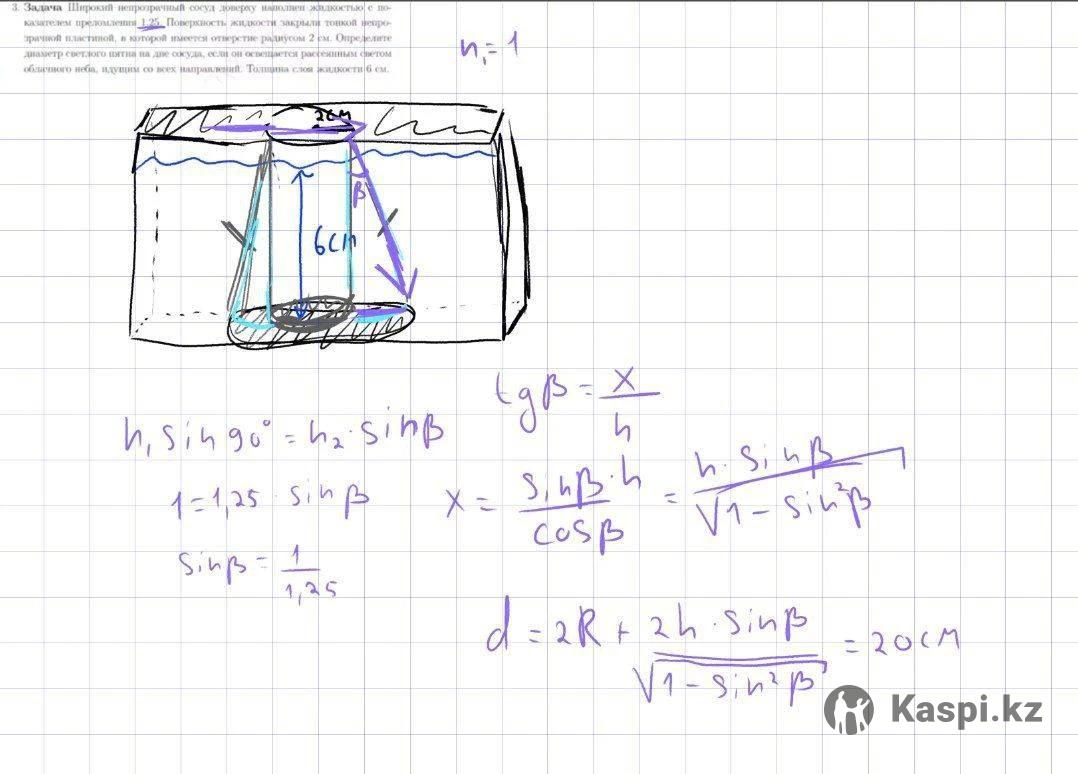 3. Задача Широкий непрозрачный сосуд доверху наполнен жидкостью с по-
казателем преломления 1,25. Поверхность жидкости закрыли тонкой непро-
зрачной пластиной, в которой имеется отверстие радиусом 2 см. Определите
диаметр светлого пятна на дне сосуда, если он освещается рассеянным светом
облачного неба, идущим со всех направлений. Толщина слоя жидкости 6 см.
n₁=1
2см
β
6см
tgβ = x/h
n₁ sin 90° = n₂ · sinβ
1=1,25 · sinβ
x = sinβ·h/cosβ = h·sinβ/√1-sin²β
sinβ = 1/1,25
d = 2R + 2h·sinβ/√1-sin²β = 20см
Kaspi.kz